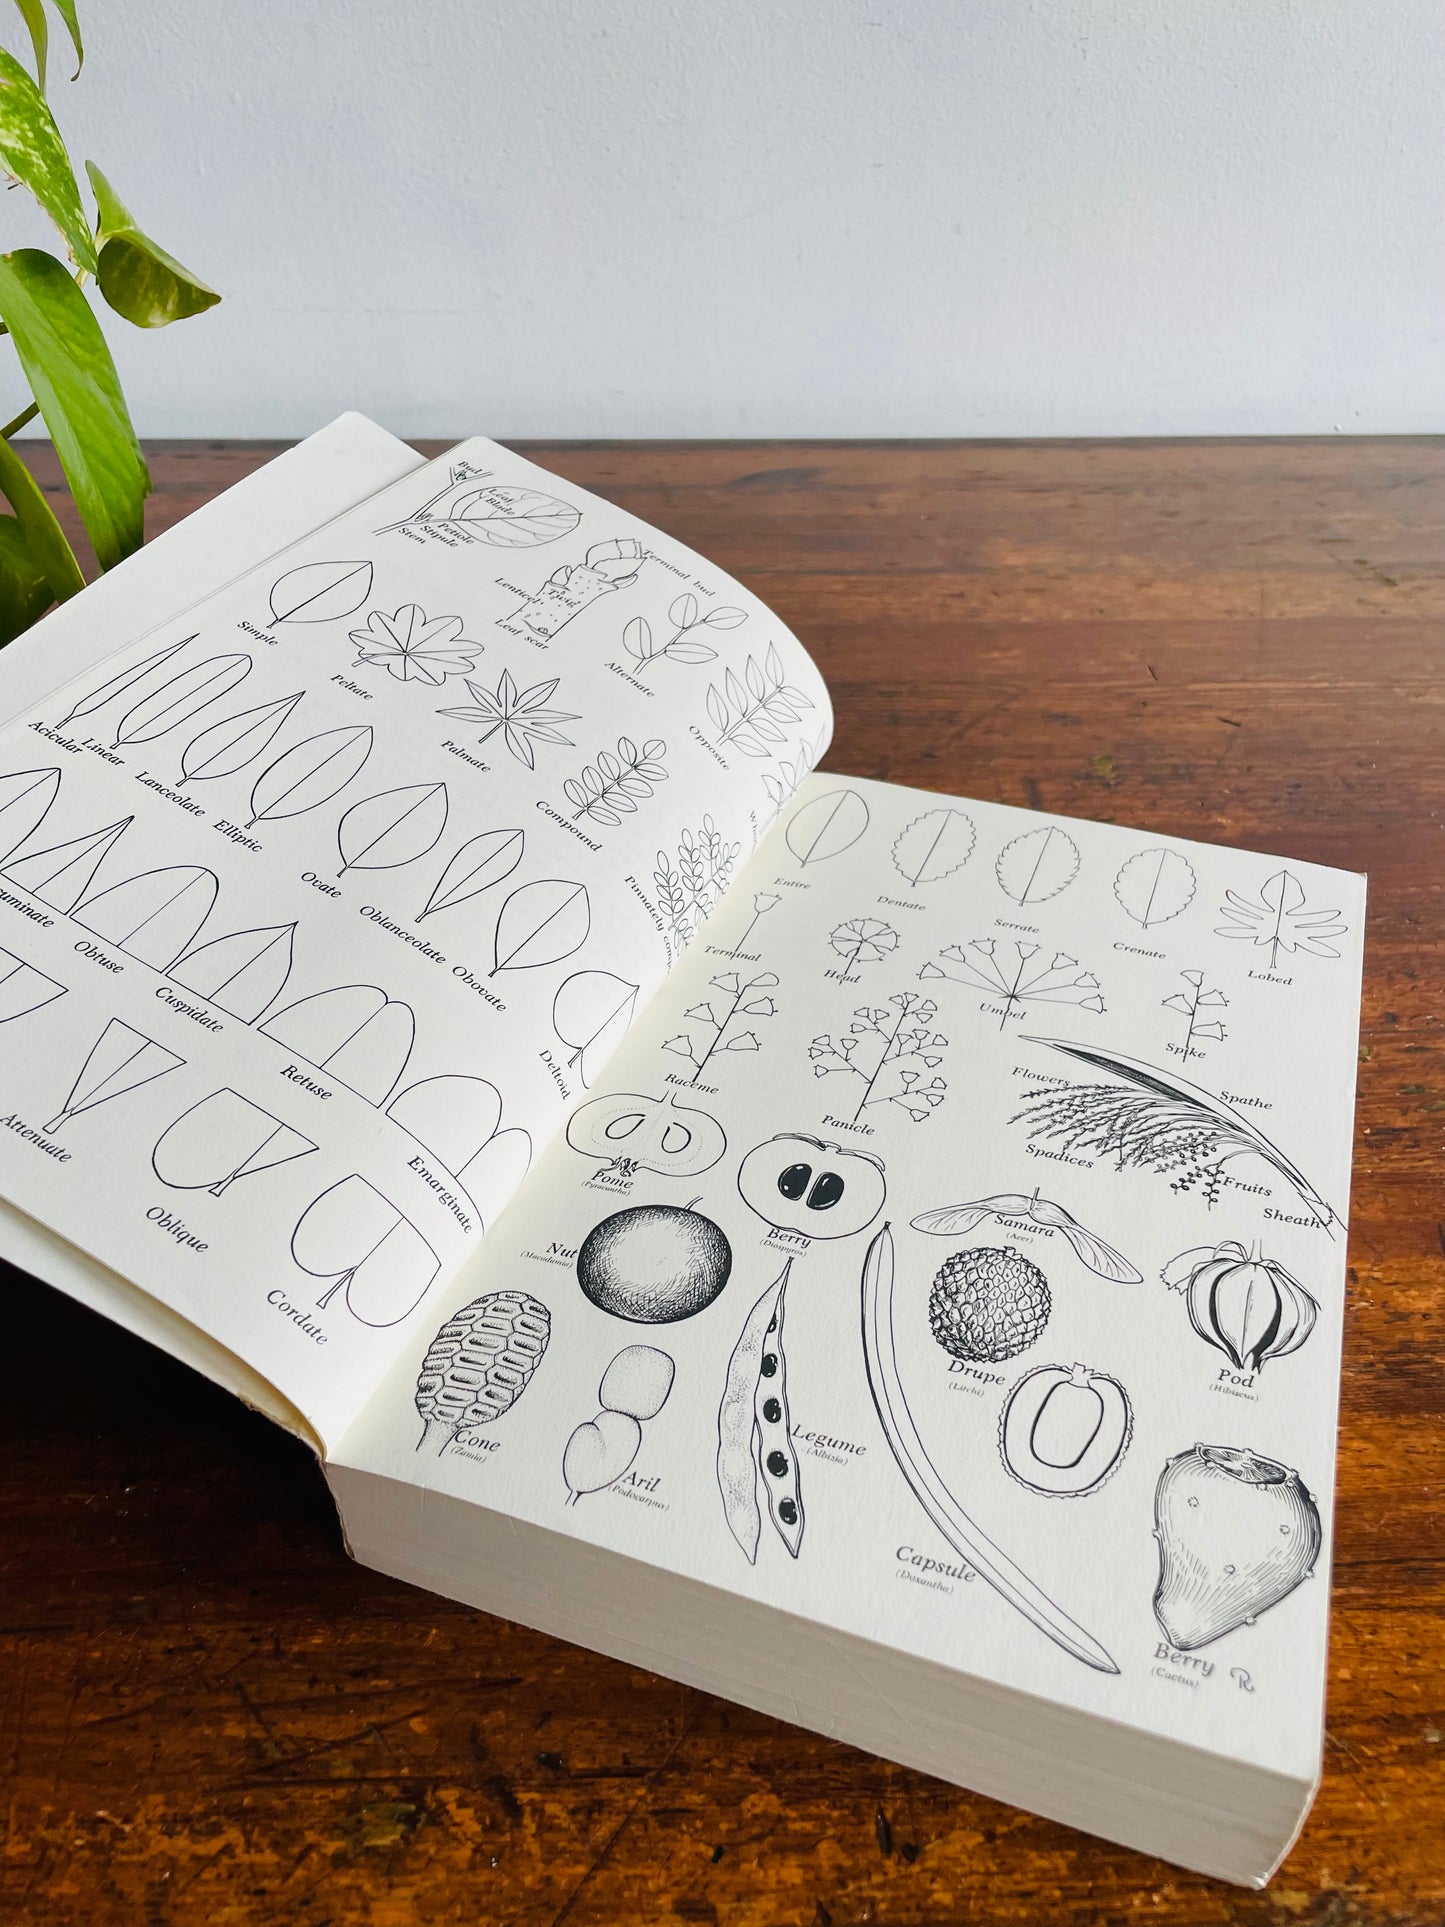 Bud
Leaf
Blade
Petiole
Stipule
Stem
Terminal bud
Lenticel
Twig
Leaf scar
Simple
Peltate
Alternate
Acicular
Linear
Lanceolate
Elliptic
Palmate
Opposite
Compound
Ovate
Oblanceolate
Obovate
Pinnately
Obtuse
Cuspidate
Retuse
Deltoid
Emarginate
Attenuate
Oblique
Cordate
Entire
Dentate
Serrate
Crenate
Lobed
Terminal
Head
Umbel
Spike
Raceme
Panicle
Flowers
Spathe
Spadices
Fruits
Sheath
Pome
(Pyracantha)
Berry
(Diospyros)
Samara
(Acer)
Nut
(Macadamia)
Drupe
(Litchi)
Pod
(Hibiscus)
Cone
(Zamia)
Aril
(Podocarpus)
Legume
(Albizia)
Capsule
(Doxantha)
Berry
(Cactus)
R